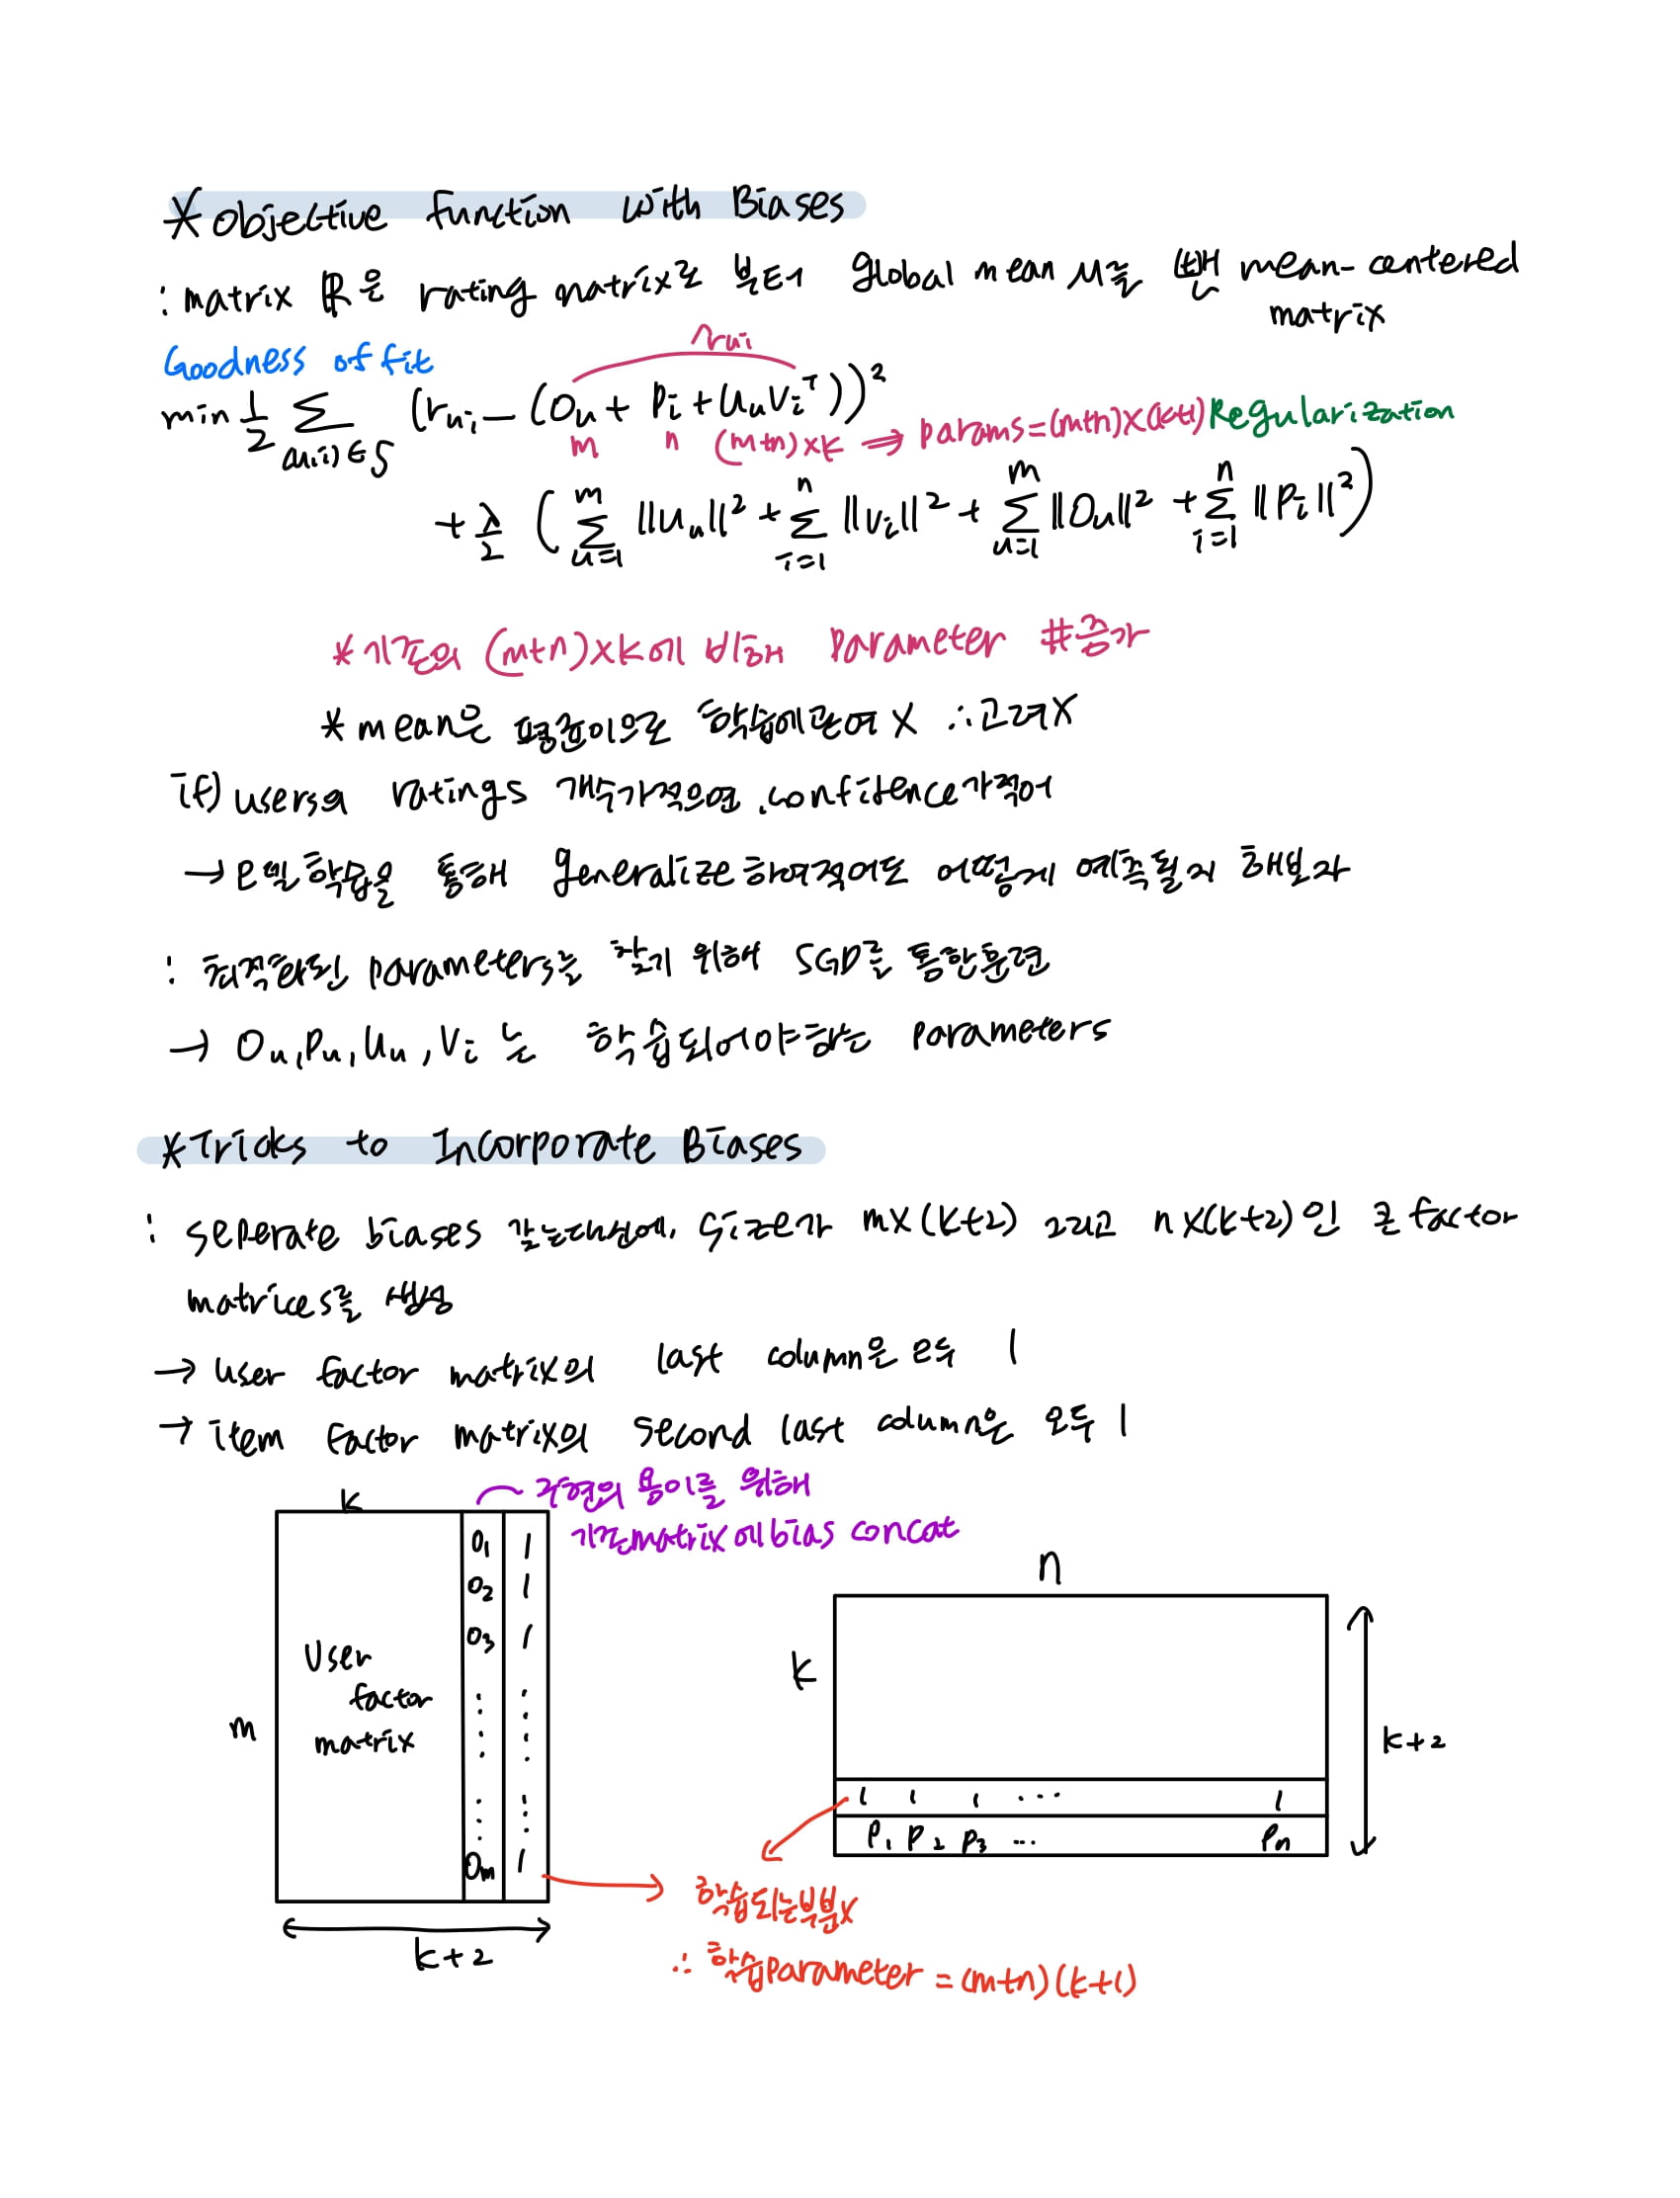 *Objective function with Biases
: matrix R은 rating matrix로 부터 global mean μ를 뺀 mean-centered
matrix
Goodness of fit
r̂ui
min 1/2 Σ(u,i)∈S (rui - (Ou + Pi + UuViᵀ))²
m n (m+n)×k ⇒ params=(m+n)×(k+1) Regularization
+ λ/2 ( Σu=1^m ||Uu||² + Σi=1^n ||Vi||² + Σu=1^m ||Ou||² + Σi=1^n ||Pi||² )
*기존의 (m+n)×k에 비해 parameter #증가
*mean은 평균이므로 학습에관여 X ∴고려X
if) users의 ratings 개수가적으면, confidence가적어
→모델학습을 통해 generalize하여적어도 어떻게 예측될지 해보자
: 최적화된 parameters를 찾기 위해 SGD를 통한훈련
→ Ou, Pu, Uu, Vi 는 학습되어야하는 parameters
*Tricks to Incorporate Biases
: seperate biases 갖는대신에, size가 m×(k+2) 그리고 n×(k+2)인 큰 factor
matrices를 생성
→ user factor matrix의 last column은 모두 1
→ item factor matrix의 second last column은 모두 1
구현의 용이를 위해
기존matrix에 bias concat
k
O1 1
O2 1
O3 1
User
factor
matrix
m
Om 1
k+2
n
k
k+2
1 1 1 ... 1
P1 P2 P3 ... Pn
학습되는부분X
∴ 학습parameter = (m+n)(k+1)